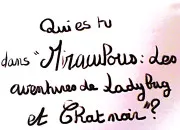 Qui es tu
dans "Miraculous : Les
aventures de Ladybug
et Chat noir"?